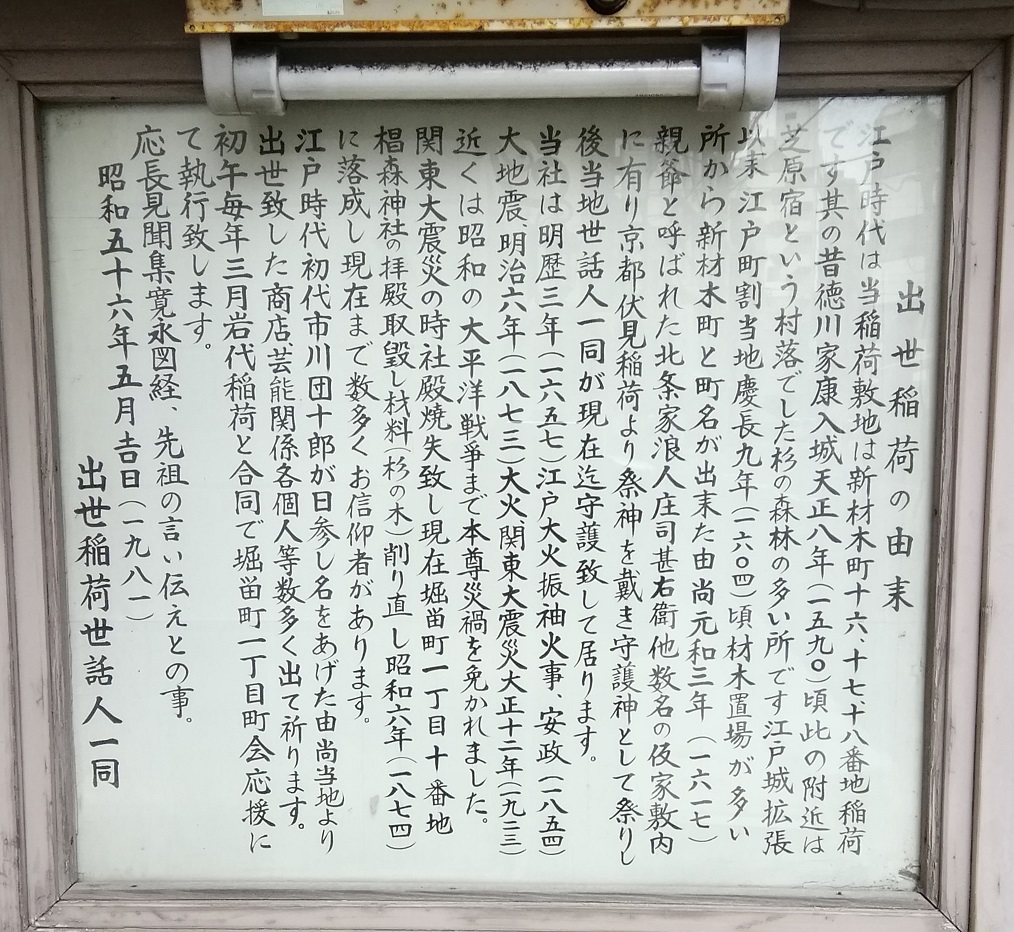 出世稲荷の由来
江戸時代は当稲荷敷地は新材木町十六、十七、十八番地稲荷
です其の昔徳川家康入城天正八年(一五九〇)頃此の附近は
芝原宿という村落でした杉の森林の多い所です江戸城拡張
以来江戸町割当地慶長九年(一六〇四)頃材木置場が多い
所から新材木町と町名が出来た由尚元和三年(一六一七)
親爺と呼ばれた北条家浪人庄司甚右衛他数名の仮家敷内
に有り京都伏見稲荷より祭神を戴き守護神として祭りし
後当地世話人一同が現在迄守護致して居ります。
当社は明歴三年(一六五七)江戸大火振袖火事、安政(一八五四)
大地震、明治六年(一八七三)大火、関東大震災大正十二年(一九二三)
近くは昭和の大平洋戦争まで本尊災禍を免かれました。
関東大震災の時社殿焼失致し現在堀留町一丁目十番地
椙森神社の拝殿取毀し材料(杉の木)削り直し昭和六年(一八七四)
に落成し現在まで数多くお信仰者があります。
江戸時代初代市川団十郎が日参し名をあげた由尚当地より
出世致した商店芸能関係各個人等数多く出て祈ります。
初午毎年三月岩代稲荷と合同で堀留町一丁目町会応援に
て執行致します。
応長見聞集寛永図経、先祖の言い伝えとの事。
昭和五十六年五月吉日(一九八一)
出世稲荷世話人一同